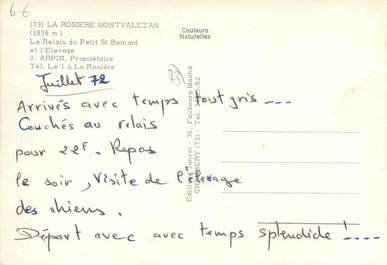 6-€
(73) LA ROSIERE MONTVALEZAN
(1856 m.)
Le Relais du Petit St Bernard
et l'Elevage
J. ARPIN, Propriétaire
Tél. Le 1 à La Rosière
Couleurs
Naturelles
73)
Juillet 72
Arrivés avec temps tout gris ---
Couchés au relais
pour 22F. Repas
le soir, Visite de l'élevage
des chiens.
Départ avec avec temps splendide !----
36, Faubourg Maché
CHAMBERY (73) - Tél.